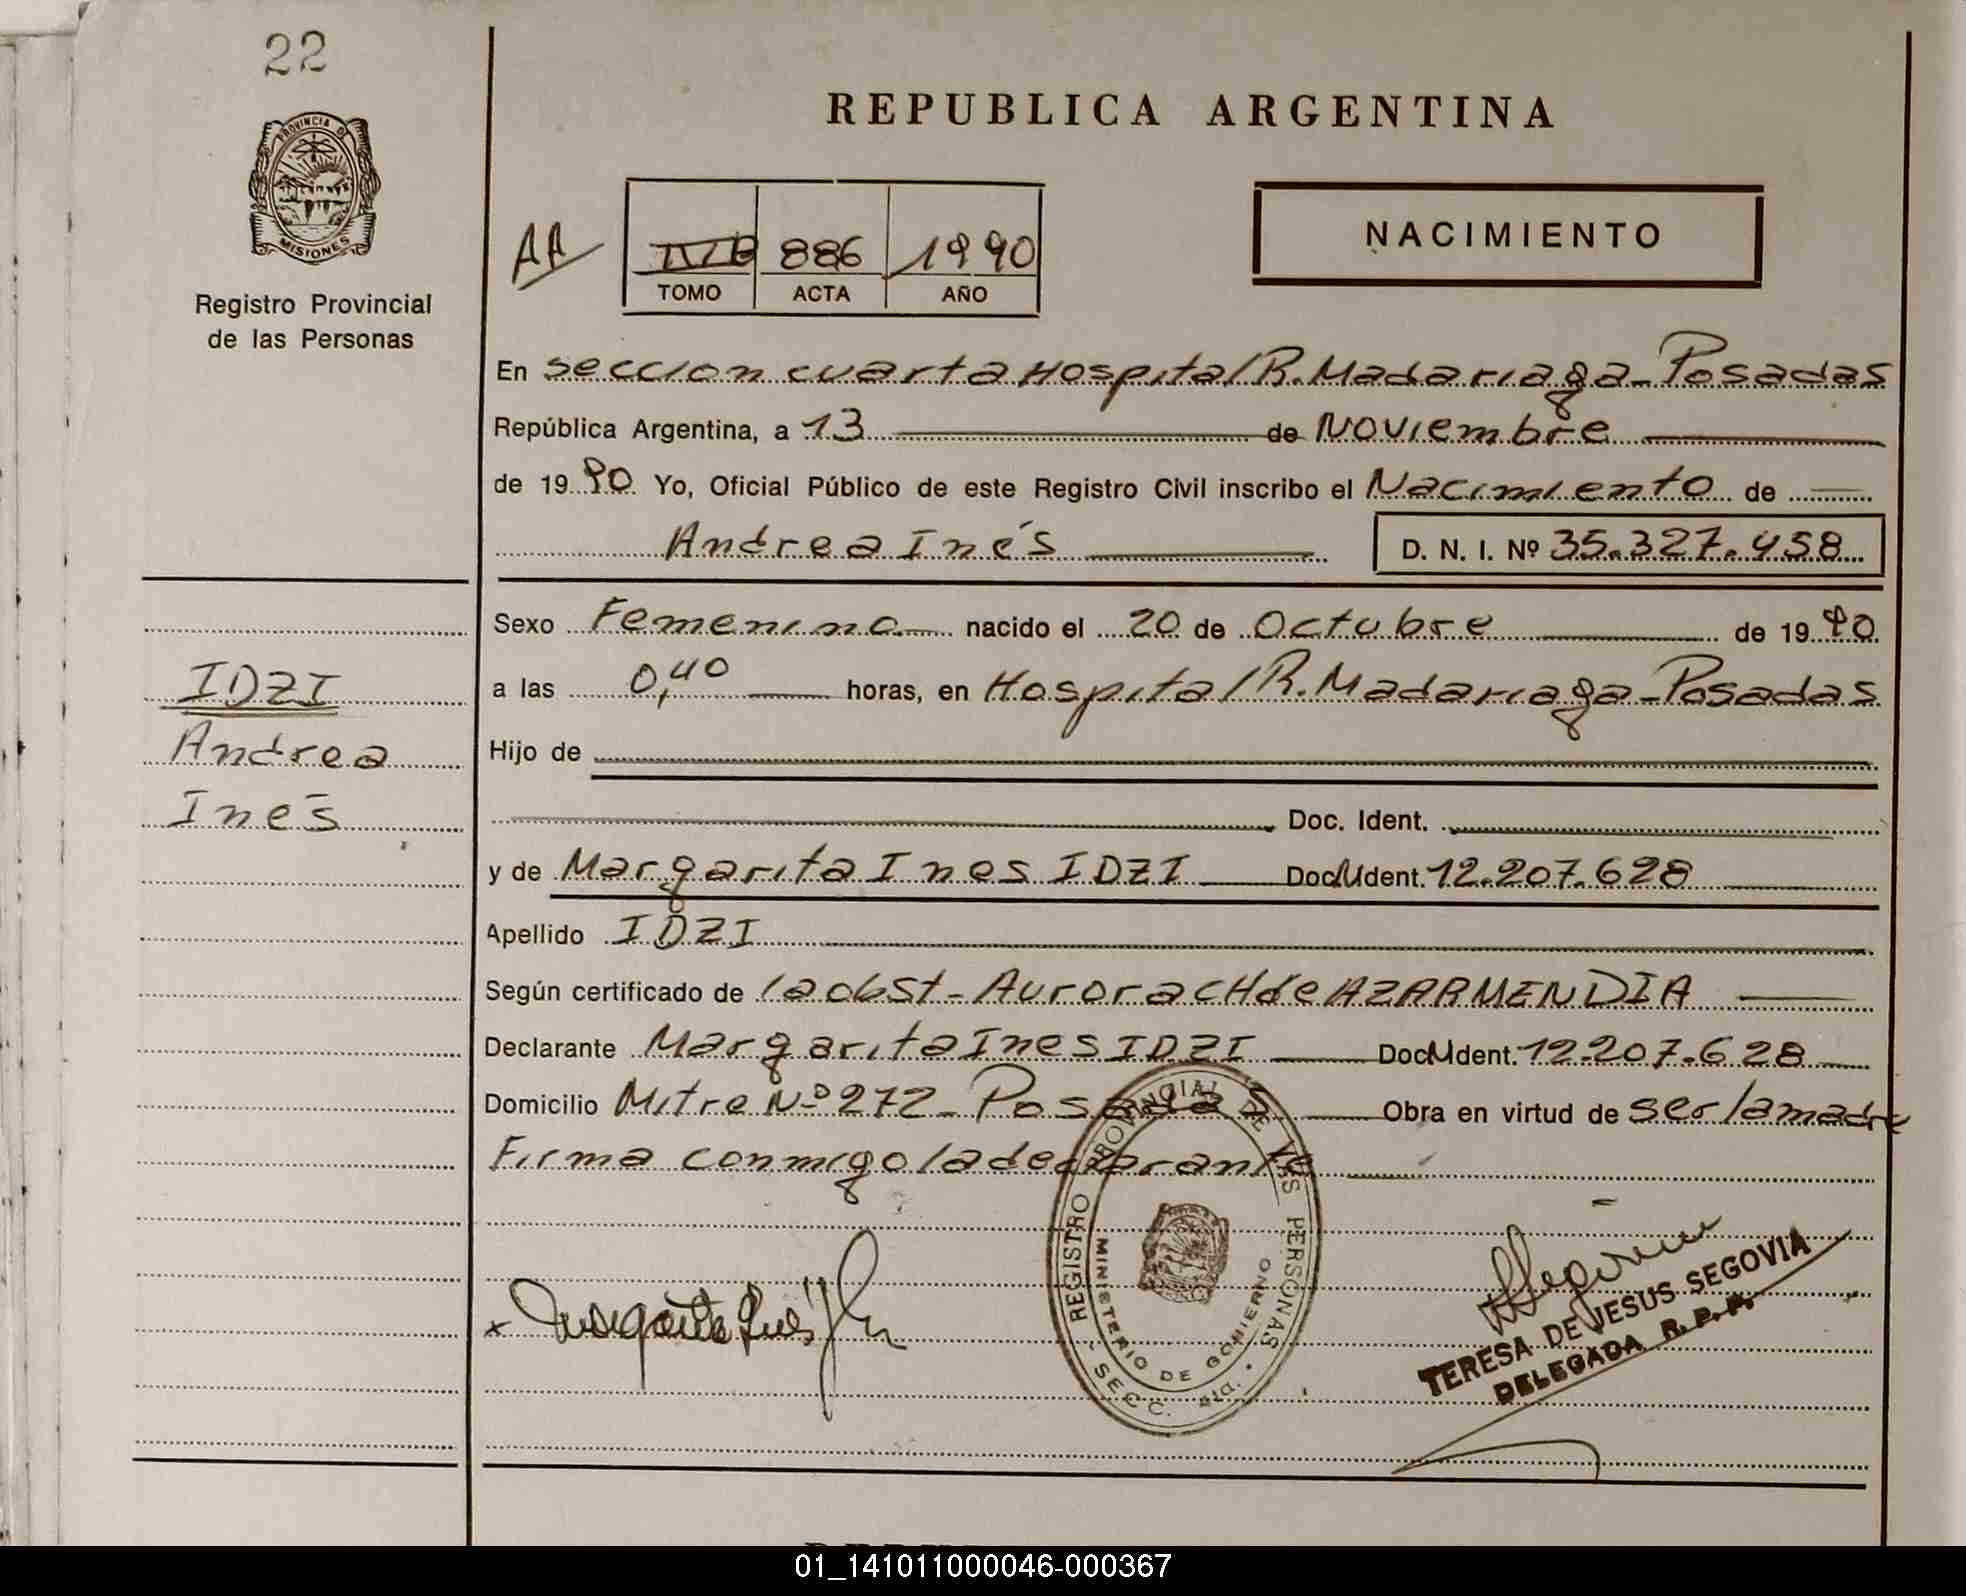 22
PROVINCIA DE
MISIONES
Registro Provincial
de las Personas
REPUBLICA ARGENTINA
886 1990
TOMO ACTA AÑO
NACIMIENTO
En seccion cuarta Hospital R. Madariaga - Posadas
República Argentina, a 13 de Noviembre
de 1990 Yo, Oficial Público de este Registro Civil inscribo el Nacimiento de
Andrea Inés D. N. I. Nº 35.327.458
Sexo Femenino nacido el 20 de Octubre de 1990
a las 0,40 horas, en Hospital R. Madariaga - Posadas
Hijo de
Doc. Ident.
y de Margarita Ines IDZI Doc. Ident. 12.207.628
Apellido IDZI
Según certificado de la obst - Aurora CH de AZARMENDIA
Declarante Margarita Ines IDZI Doc. Ident. 12.207.628
Domicilio Mitre Nº 272 - Posadas Obra en virtud de ser la madre
Firma conmigo la declarante
IDZI
Andrea
Inés
Margarita Inés
REGISTRO PROVINCIAL DE LAS PERSONAS
MINISTERIO DE GOBIERNO
SECC. 4ta.
TERESA DE JESUS SEGOVIA
DELEGADA R. P. P.
01_141011000046-000367